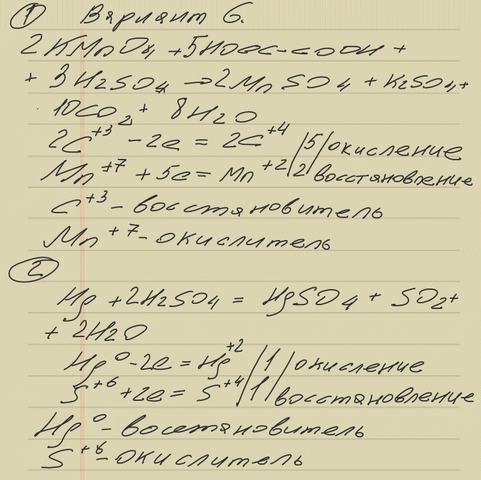 1 Вариант 6.
2KMnO4 + 5HOOC-COOH +
+ 3H2SO4 → 2MnSO4 + K2SO4 +
10CO2 + 8H2O
2C+3 - 2e = 2C+4 /5/ окисление
Mn+7 + 5e = Mn+2 /2/ восстановление
C+3 - восстановитель
Mn+7 - окислитель
2
Hg + 2H2SO4 = HgSO4 + SO2 +
+ 2H2O
Hg0 - 2e = Hg+2 /1/ окисление
S+6 + 2e = S+4 /1/ восстановление
Hg0 - восстановитель
S+6 - окислитель